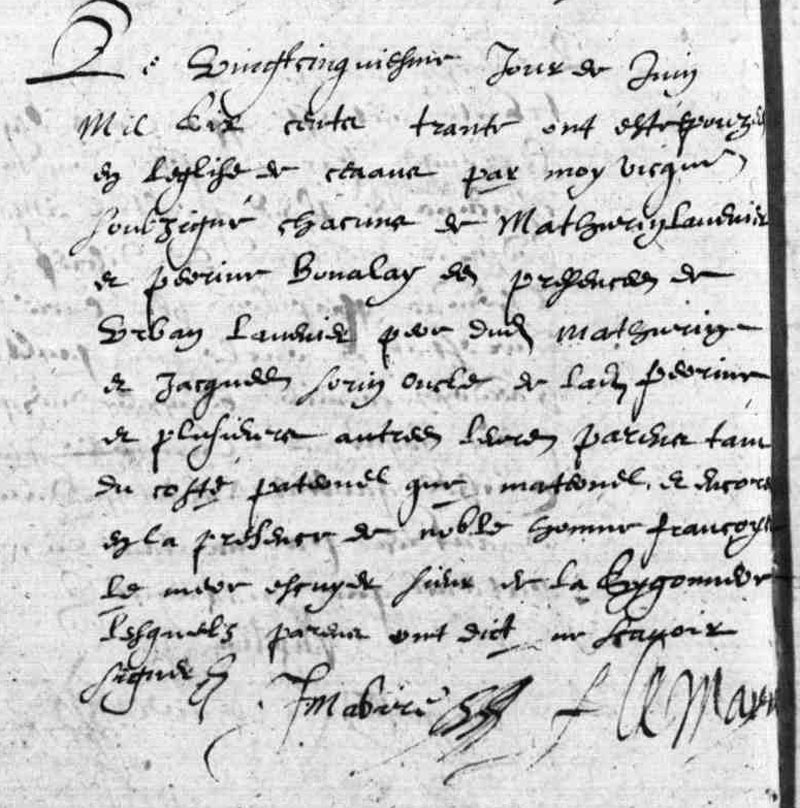 Le Vingtcinquiesme Jour de Juin
Mil six cents trante ont esté espouzes
en leglise de ceaans par moy vicquere
soubzigné chacuns de Mathurin Lauenier
et perrine Boualay es presences de
Vrban Lauenier pere dud Mathurin
et Jacques sorin oncle de lad perrine
et plusieurs autres leurs parens tant
du costé paternel que maternel, et encores
en la presence de noble homme françoys
le mere escuyer sieur de la
lesquels parens ont dict ne scauoir
signer
Mabire f le Mayre